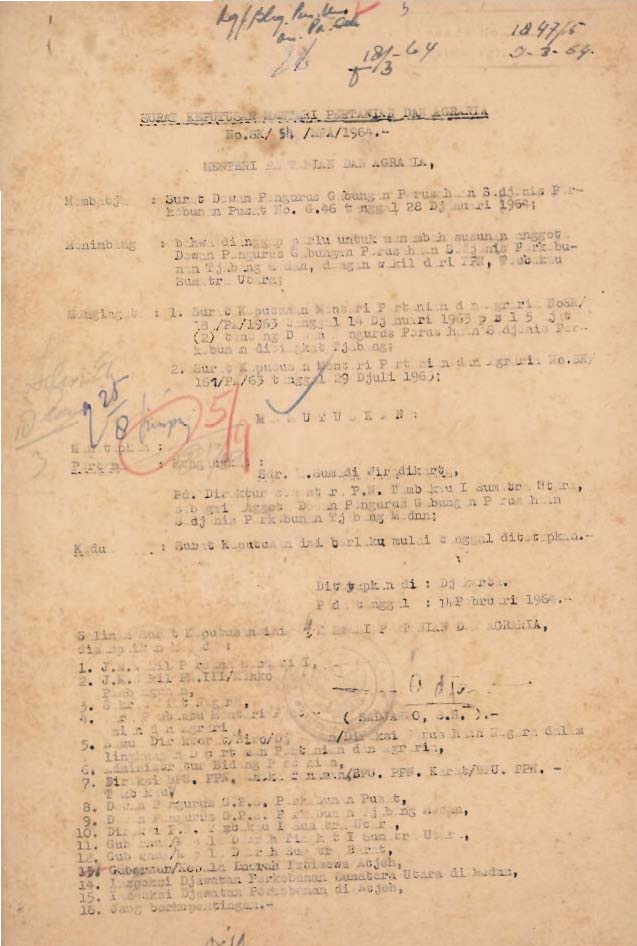 1847/5
9-3-64.
18/3-64
SURAT KEPUTUSAN MENTERI PERTANIAN DAN AGRARIA
No.SK/ 54 /MPA/1964.-
MENTERI PERTANIAN DAN AGRARIA,
Membatja : Surat Dewan Pengurus Gabungan Perusahaan Sedjenis Per-
kebunan Pusat No. G.46 tanggal 28 Djanuari 1964;
Menimbang : bahwa dianggap perlu untuk menambah susunan anggota
Dewan Pengurus Gabungan Perusahaan Sedjenis Perkebu-
nan Tjabang Medan, dengan wakil dari PPN, Tembakau
Sumatra Utara;
Mengingat : 1. Surat Keputusan Menteri Pertanian dan Agraria No.SK/
/PA/1963 tanggal 14 Djanuari 1963 pasal 5 ajat
(2) tentang Dewan Pengurus Perusahaan Sedjenis Per-
kebunan ditingkat Tjabang;
2. Surat Keputusan Menteri Pertanian dan Agraria No.SK/
161/PA/63 tanggal 29 Djuli 1963;
25/8
5/9
M E M U T U S K A N :
Menetapkan :
Pertama : Mengangkat :
Sdr. Sumadi Wiradikarta,
Pd. Direktur P.N. Tembakau I Sumatra Utara,
sebagai Anggota Dewan Pengurus Gabungan Perusahaan
Sedjenis Perkebunan Tjabang Medan;
Kedua : Surat Keputusan ini berlaku mulai tanggal ditetapkan.-
Ditetapkan di : Djakarta.
Pada tanggal : 14 Pebruari 1964.-
Salinan Surat Keputusan ini MENTERI PERTANIAN DAN AGRARIA,
disampaikan kepada :
1. J.M. Wakil Perdana Menteri I,
2. J.M. Wakil PM.III/Menko
Pembangunan,
3. Sekretaris Negara,
4. Para Pembantu Menteri Pertanian ( SADJARWO, S.H. ).-
dan Agraria,
5. Semua Direktorat/Biro/Djawatan/Direksi Perusahaan Negara dalam
lingkungan Departemen Pertanian dan Agraria,
6. Administratur Bidang Pertanian,
7. Direksi BPU. PPN. /BPU. PPN. Karet/BPU. PPN. -
Tembakau,
8. Dewan Pengurus G.P.S. Perkebunan Pusat,
9. Dewan Pengurus G.P.S. Perkebunan Tjabang Medan,
10. Direksi P.N. Tembakau I Sumatra Utara,
11. Gubernur/Kepala Daerah Tingkat I Sumatra Utara,
12. Gubernur/Kepala Daerah Sumatra Barat,
13. Gubernur/Kepala Daerah Istimewa Atjeh,
14. Inspeksi Djawatan Perkebunan Sumatera Utara di Medan,
15. Inspeksi Djawatan Perkebunan di Atjeh,
16. Jang berkepentingan.-